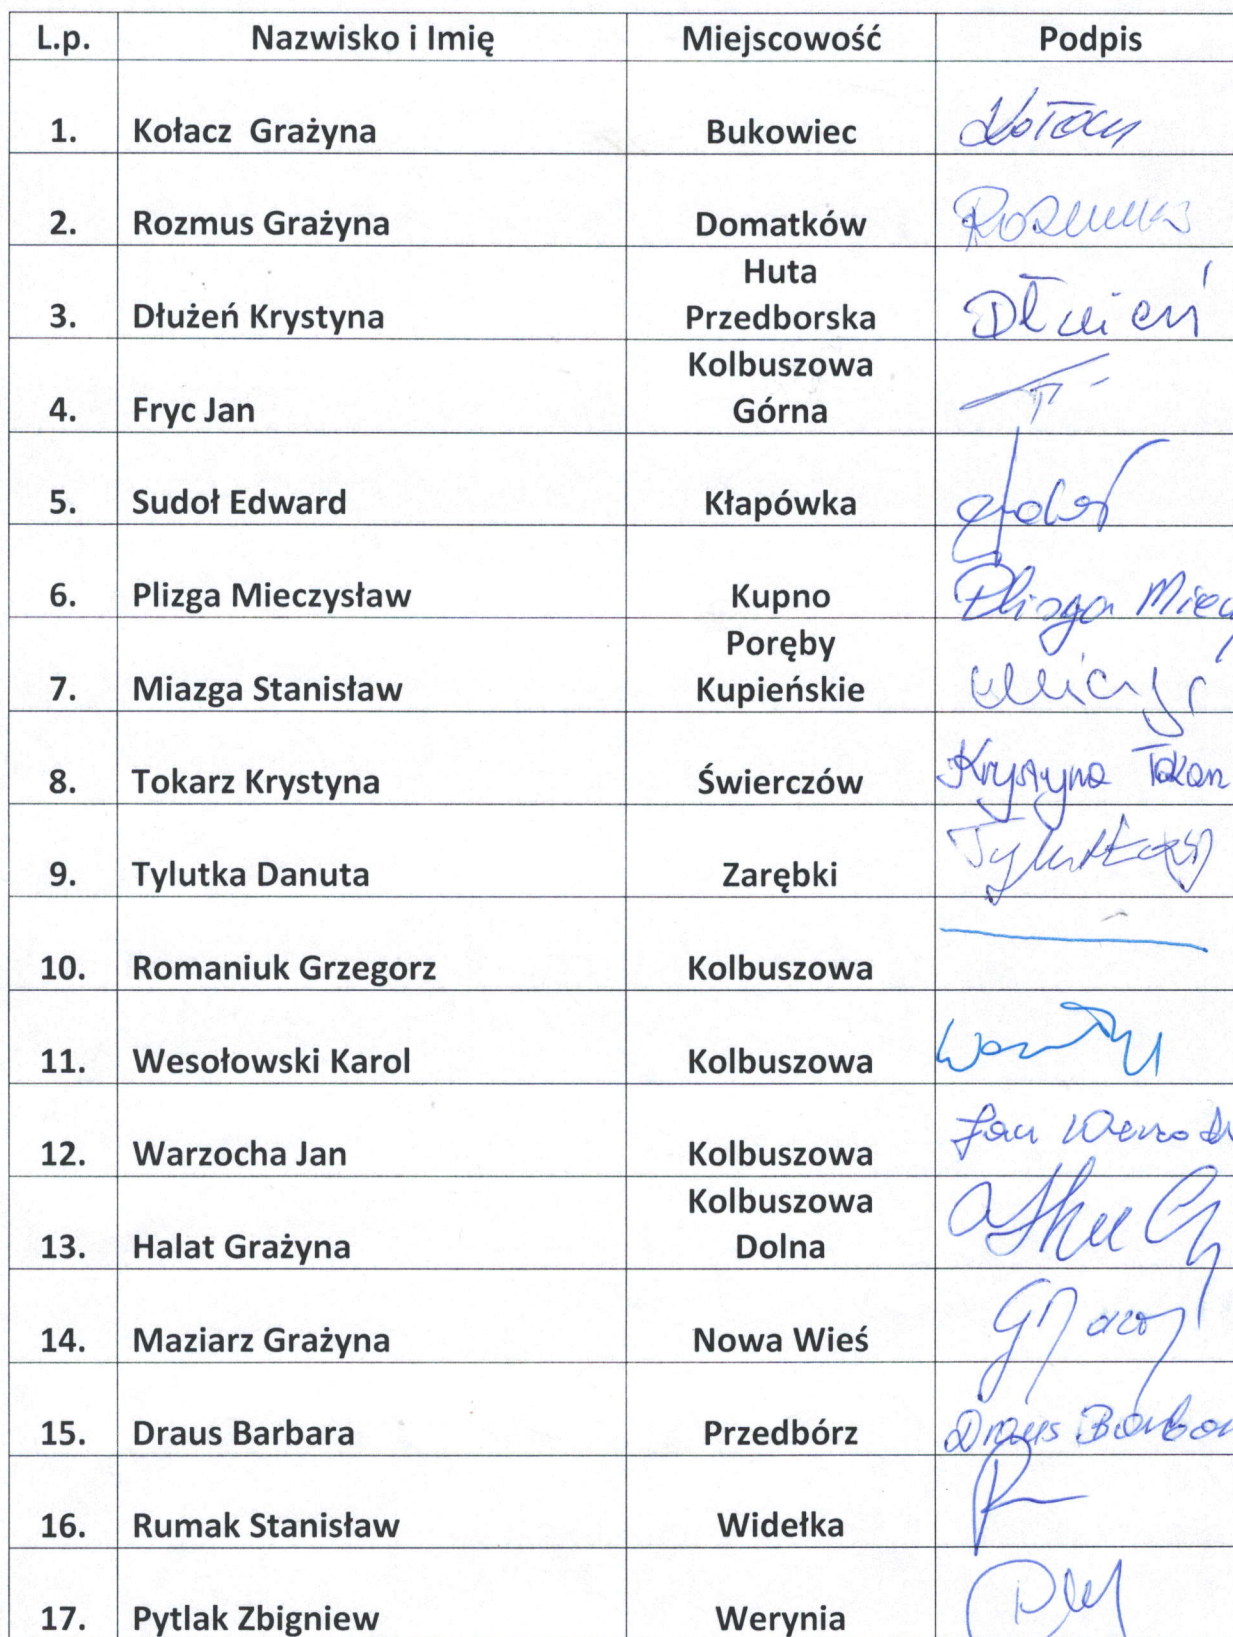 L.p. Nazwisko i Imię Miejscowość Podpis
1. Kołacz Grażyna Bukowiec Kołacz
2. Rozmus Grażyna Domatków Rozmus
Huta
3. Dłużeń Krystyna Przedborska Dłużeń
Kolbuszowa
4. Fryc Jan Górna
5. Sudoł Edward Kłapówka
6. Plizga Mieczysław Kupno Plizga Miecz
Poręby
7. Miazga Stanisław Kupieńskie
8. Tokarz Krystyna Świerczów Krystyna Tokarz
9. Tylutka Danuta Zarębki Tylutka
10. Romaniuk Grzegorz Kolbuszowa
11. Wesołowski Karol Kolbuszowa
12. Warzocha Jan Kolbuszowa Jan
Kolbuszowa
13. Halat Grażyna Dolna
14. Maziarz Grażyna Nowa Wieś
15. Draus Barbara Przedbórz Draus Barbar
16. Rumak Stanisław Widełka
17. Pytlak Zbigniew Werynia